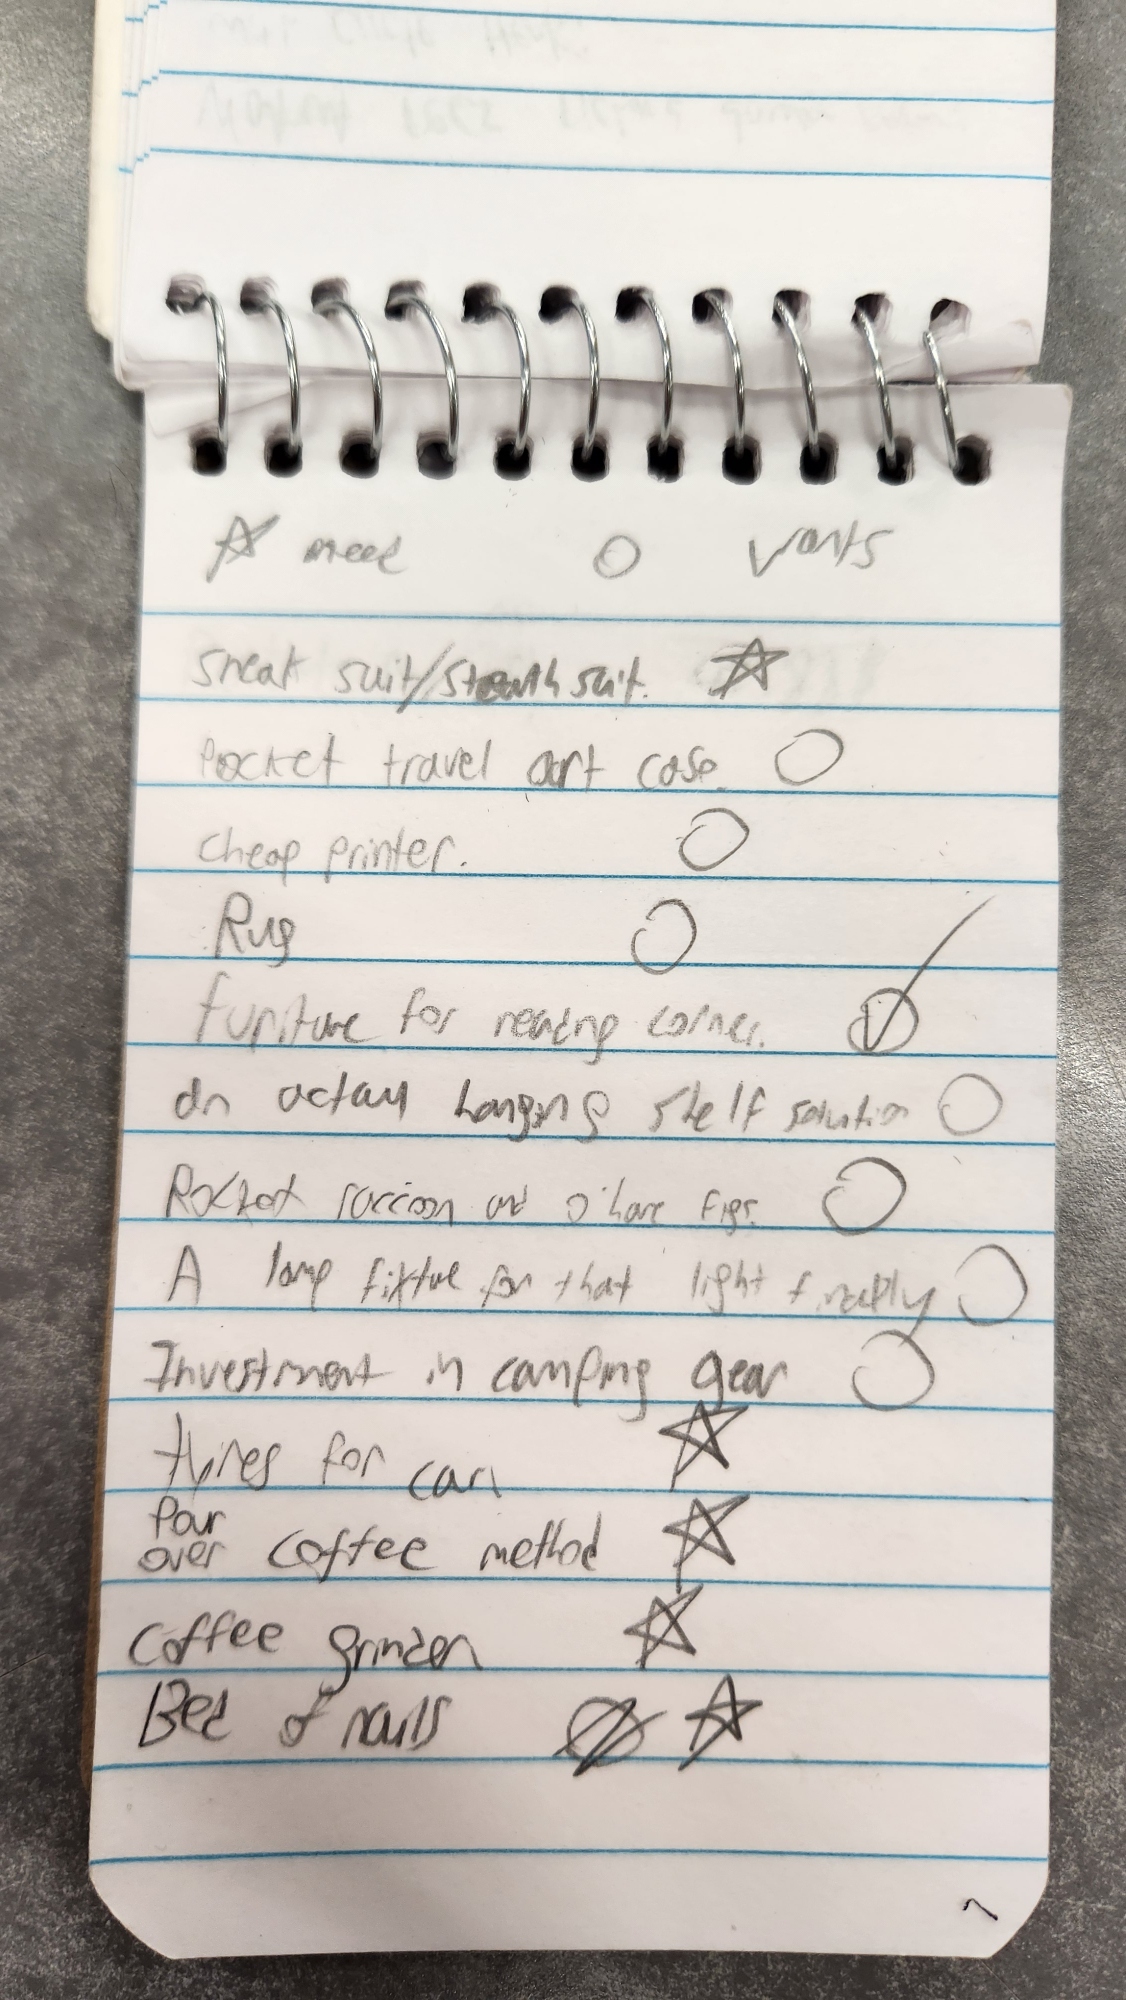 ☆ need ○ wants
sneak suit/stealth suit. ☆
Pocket travel art case. ○
cheap printer. ○
Rug ○
furniture for reading corner. ○ ✓
an actual hanging shelf solution ○
Rocket raccoon and o'hare figs. ○
A lamp fixture for that light finally ○
Investment in camping gear ○
tyres for car ☆
Pour
over coffee method ☆
Coffee grinder ☆
Bed of nails ☆